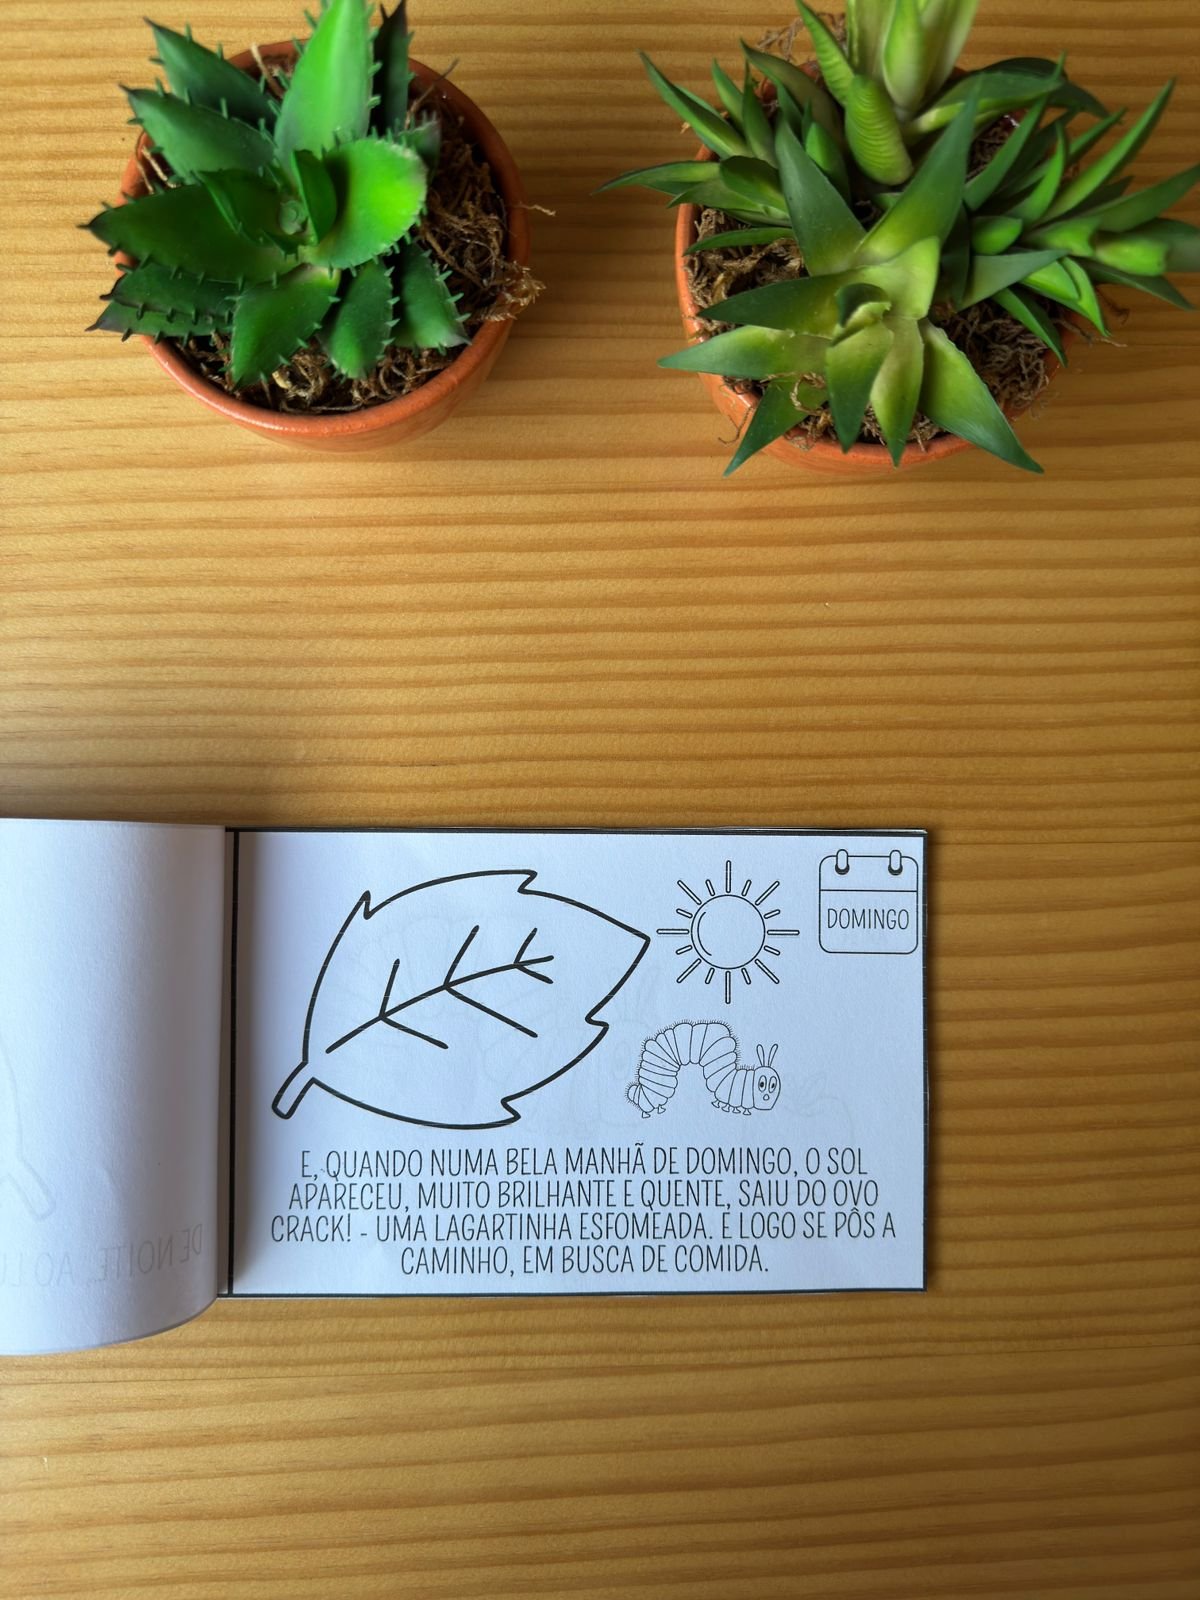 DE NOITE, AO LU
DOMINGO
E, QUANDO NUMA BELA MANHÃ DE DOMINGO, O SOL
APARECEU, MUITO BRILHANTE E QUENTE, SAIU DO OVO
CRACK! - UMA LAGARTINHA ESFOMEADA. E LOGO SE PÔS A
CAMINHO, EM BUSCA DE COMIDA.